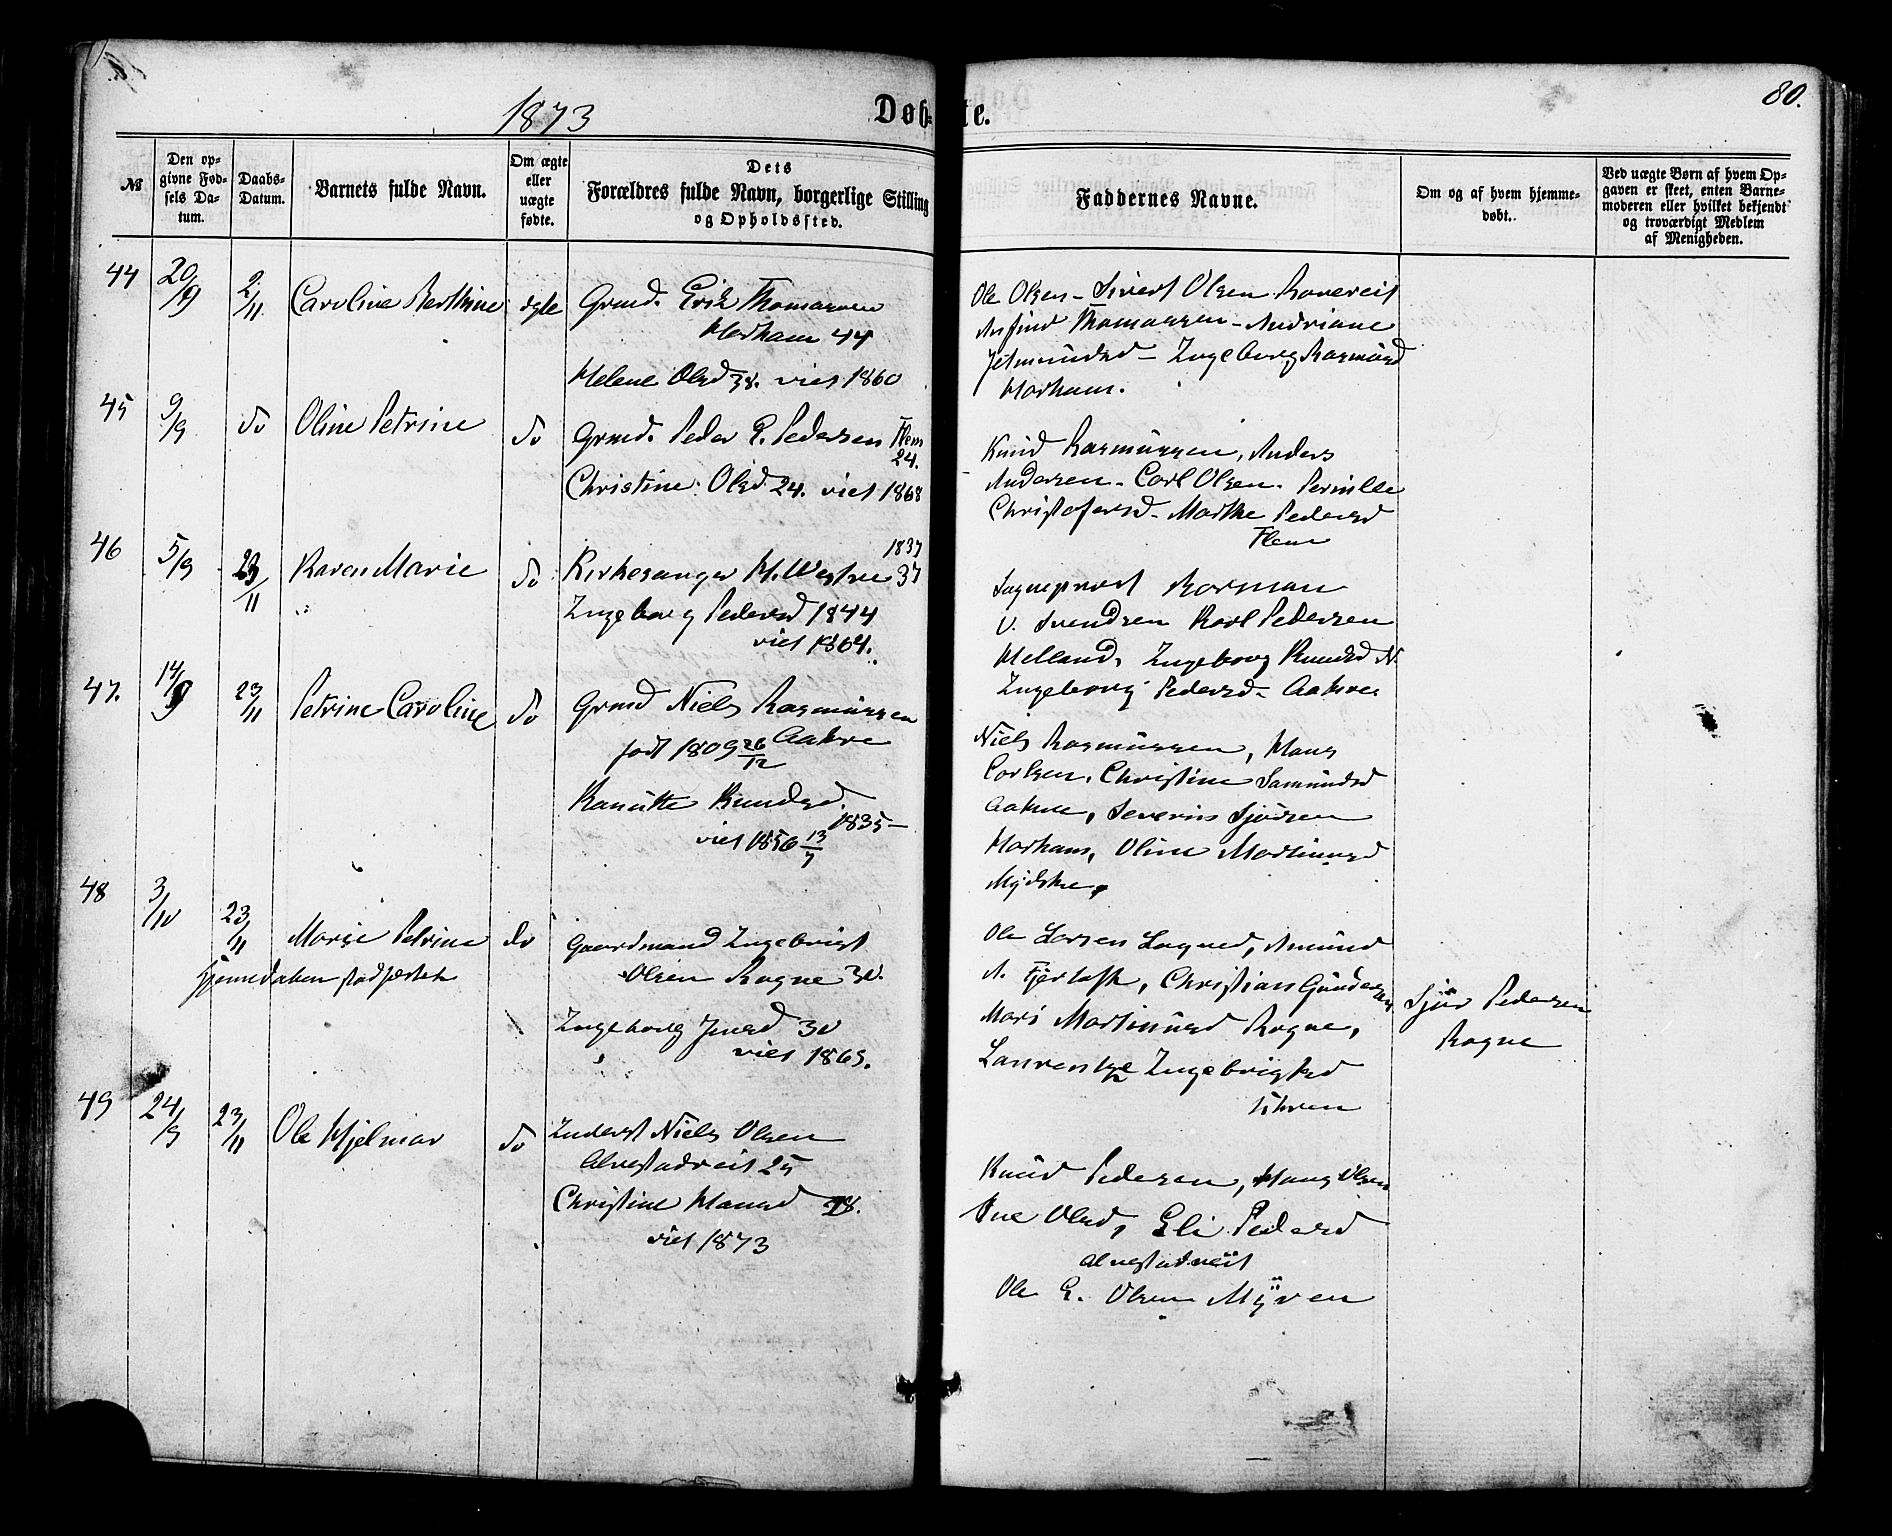 1873
Døbte.
80.
№
Den opgivne Fødsels Datum.
Daabs-Datum.
Barnets fulde Navn.
Om ægte eller uægte fødte.
Dets Forældres fulde Navn, borgerlige Stilling og Opholdssted.
Faddernes Navne.
Om og af hvem hjemmedøbt.
Ved uægte Børn af hvem Opgaven er skeet, enten Barnemoderen eller hvilket bekjendt og troværdigt Medlem af Menigheden.
44 20/9 2/11 Caroline Berthine ægte Grmd. Erik Thomassen
Harham 44
Helene Olsd 38. viet 1860
Ole Olsen - Sivert Olsen Rovereit
Anfind Thomassen - Andriane
Jetmundsd - Ingeborg Rasmusd
Harham.
45 9/9 do Oline Petrine do Grmd. Peder P. Pedersen Flem
24.
Christine Olsd 24. viet 1868
Knud Rasmussen, Anders
Andersen - Carl Olsen. Pernille
Christofersd - Marthe Pedersd
Flem
46 5/9 23/11 Karen Marie do Kirkesanger H. Westre 37
1837
Ingeborg Pedersd 1844
viet 1864.
Sogneprest Borman
V. Svendsen Karl Pedersen
Helland, Ingeborg Knudsd N.
Ingeborg Pedersd - Aakre
47. 14/9 23/11 Petrine Caroline do Grmd Niels Rasmussen
født 1809 26/12 Aakre
Kanutte Knudsd.
1835 -
viet 1856 13/7
Niels Rasmussen, Hans
Carlsen, Christine Samundsd
Aakre, Severin Sjursen
Harham, Oline Martinusd
Mydske,
48 3/10 23/11 Marie Petrine do Gaardmand Ingebrigt
Hjemmedaaben stadfæstet
Olsen Rogne 30.
Ingeborg Jensd 30
viet 1865.
Ole Larsen Amund
A. Fjertoft, Christian Gundersen
Mari Martinusd Rogne,
Ingebrigtsd
Uhren
Sjur Pedersen
Rogne
49 24/9 23/11 Ole Hjelmar do Inderst Niels Olsen
Alvestadreit 25
Christine Hansd 28.
viet 1873
Knud Pedersen, Hans Olsen
Ane Olsd, Eli Pedersd
Alvestadreit
Ole E. Olsen Myren